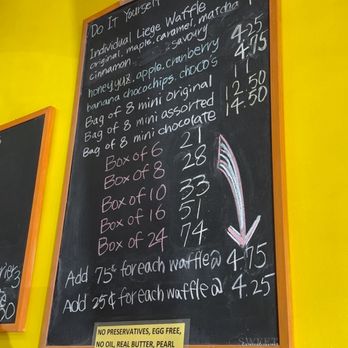 Do It Yourself
Individual Liege Waffle
original, maple, caramel, matcha 4.25
cinnamon savoury 4.75
honeyyuz, apple, cranberry
banana chocochips. choco's 11
Bag of 8 mini original 12.50
Bag of 8 mini assorted 14.50
Bag of 8 mini chocolate
Box of 6 21
Box of 8 28
Box of 10 33
Box of 16 51
Box of 24 74
Add 75¢ for each waffle @ 4.75
Add 25¢ for each waffle @ 4.25
SWEET
NO PRESERVATIVES, EGG FREE,
NO OIL, REAL BUTTER, PEARL
50